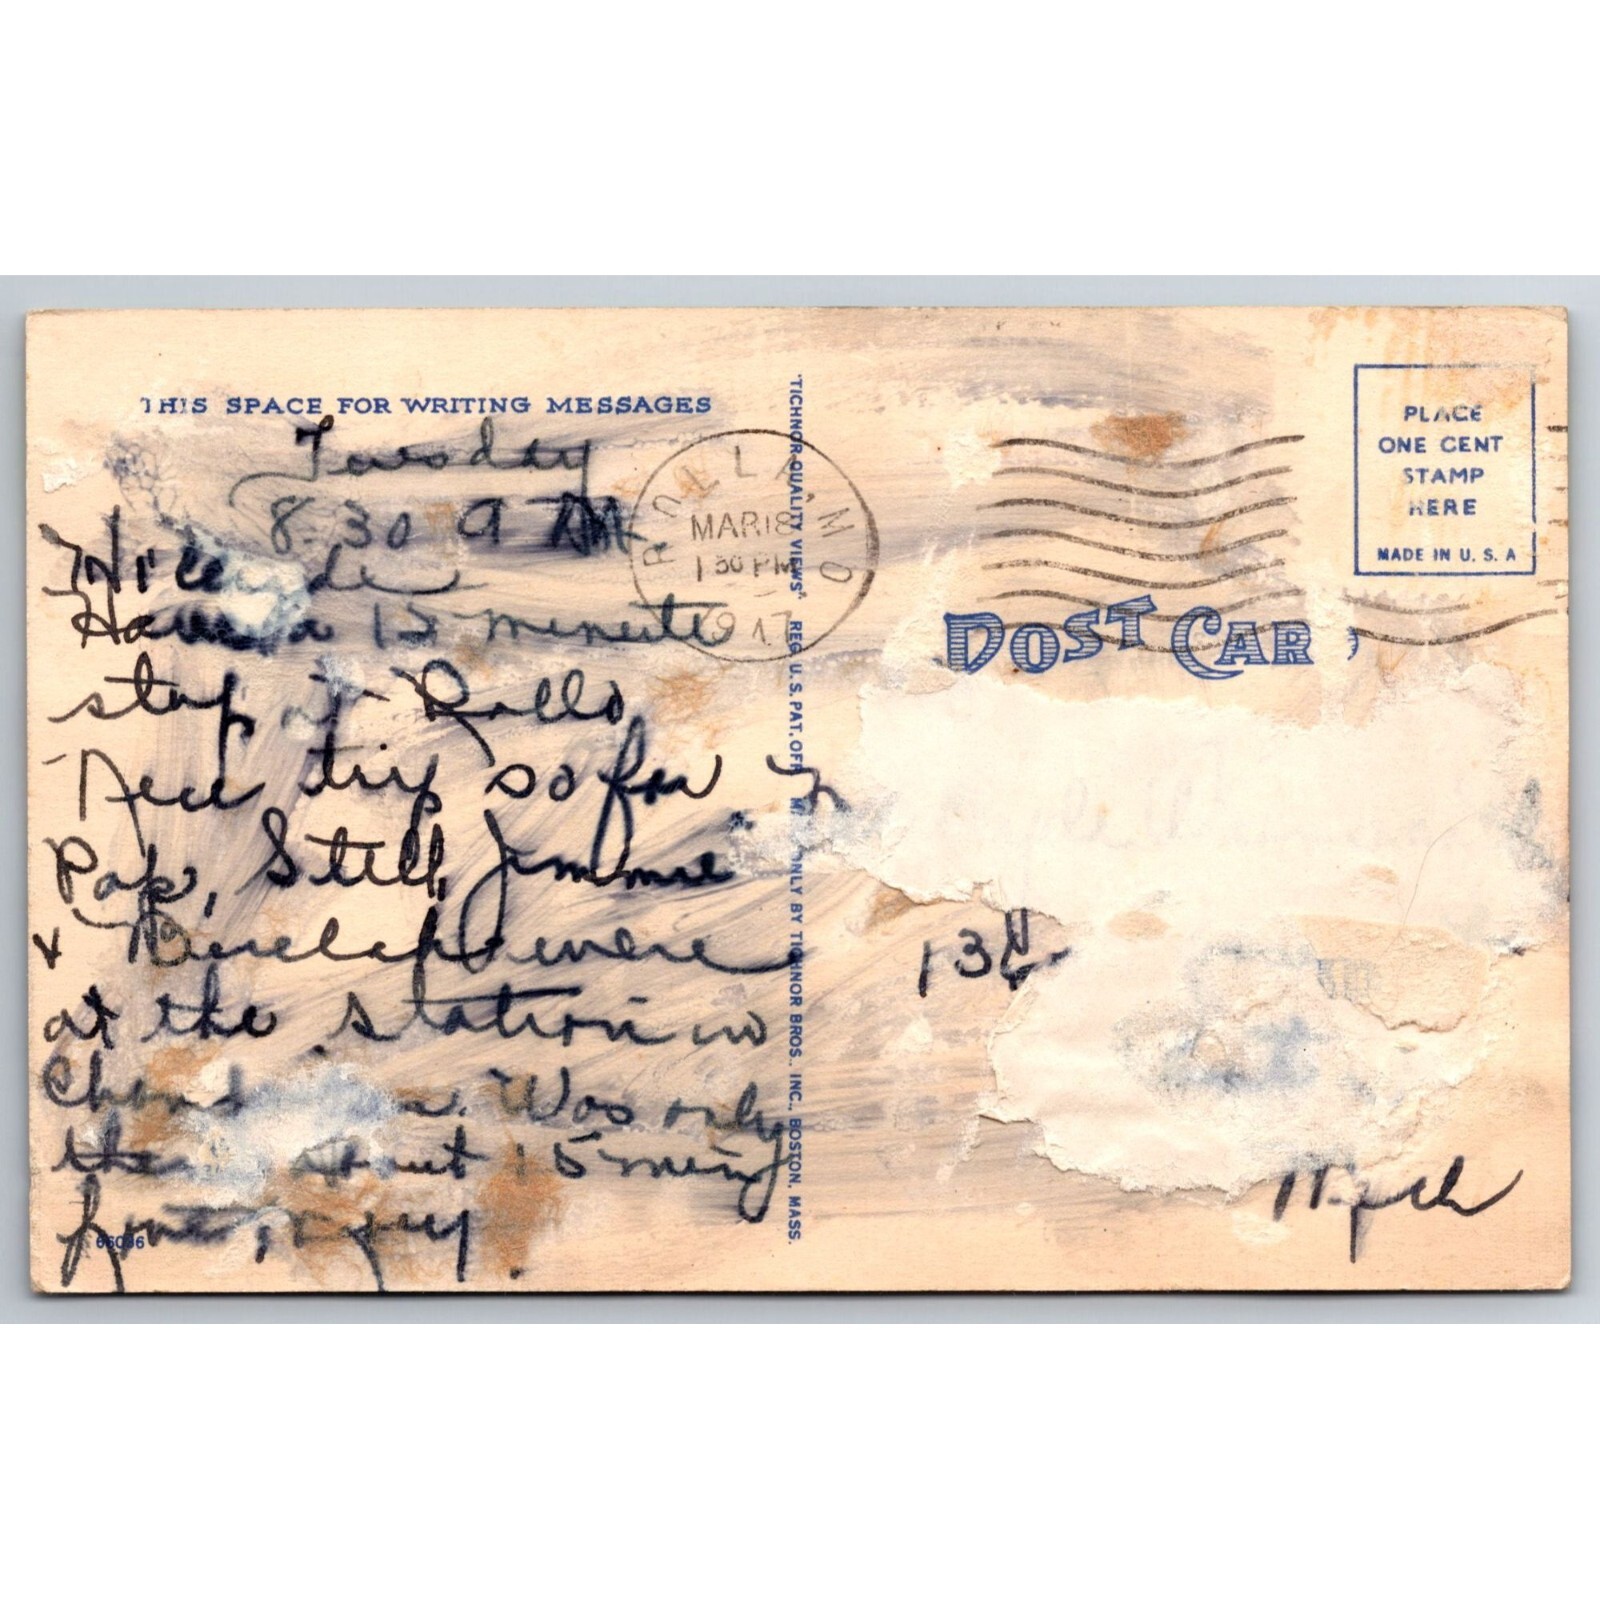 THIS SPACE FOR WRITING MESSAGES
Tuesday
8-30 A AM
Have a 15 minute
stop at Rolla
Nice trip so far
Pop, Still, Jimmie
& were
at the station in
Was only
there about 15 mins
66096
"TICHNOR QUALITY VIEWS" REG. U. S. PAT. OFF. ONLY BY TICHNOR BROS., INC., BOSTON, MASS.
ROLLA, MO
MAR 18
1 30 PM
1947
POST CAR
PLACE
ONE CENT
STAMP
HERE
MADE IN U. S. A
13
Mich